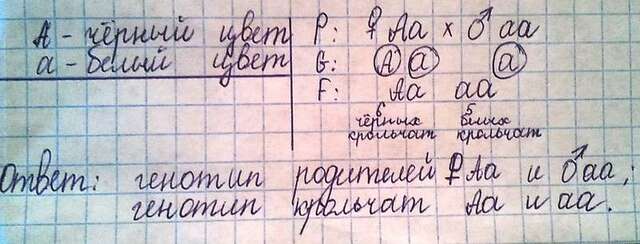 А - чёрный цвет
а - белый цвет
P: ♀ Aa x ♂ aa
G: A a a
F: Aa aa
6 чёрных крольчат
5 белых крольчат
Ответ: генотип родителей ♀ Aa и ♂ aa;
генотип крольчат Aa и aa.